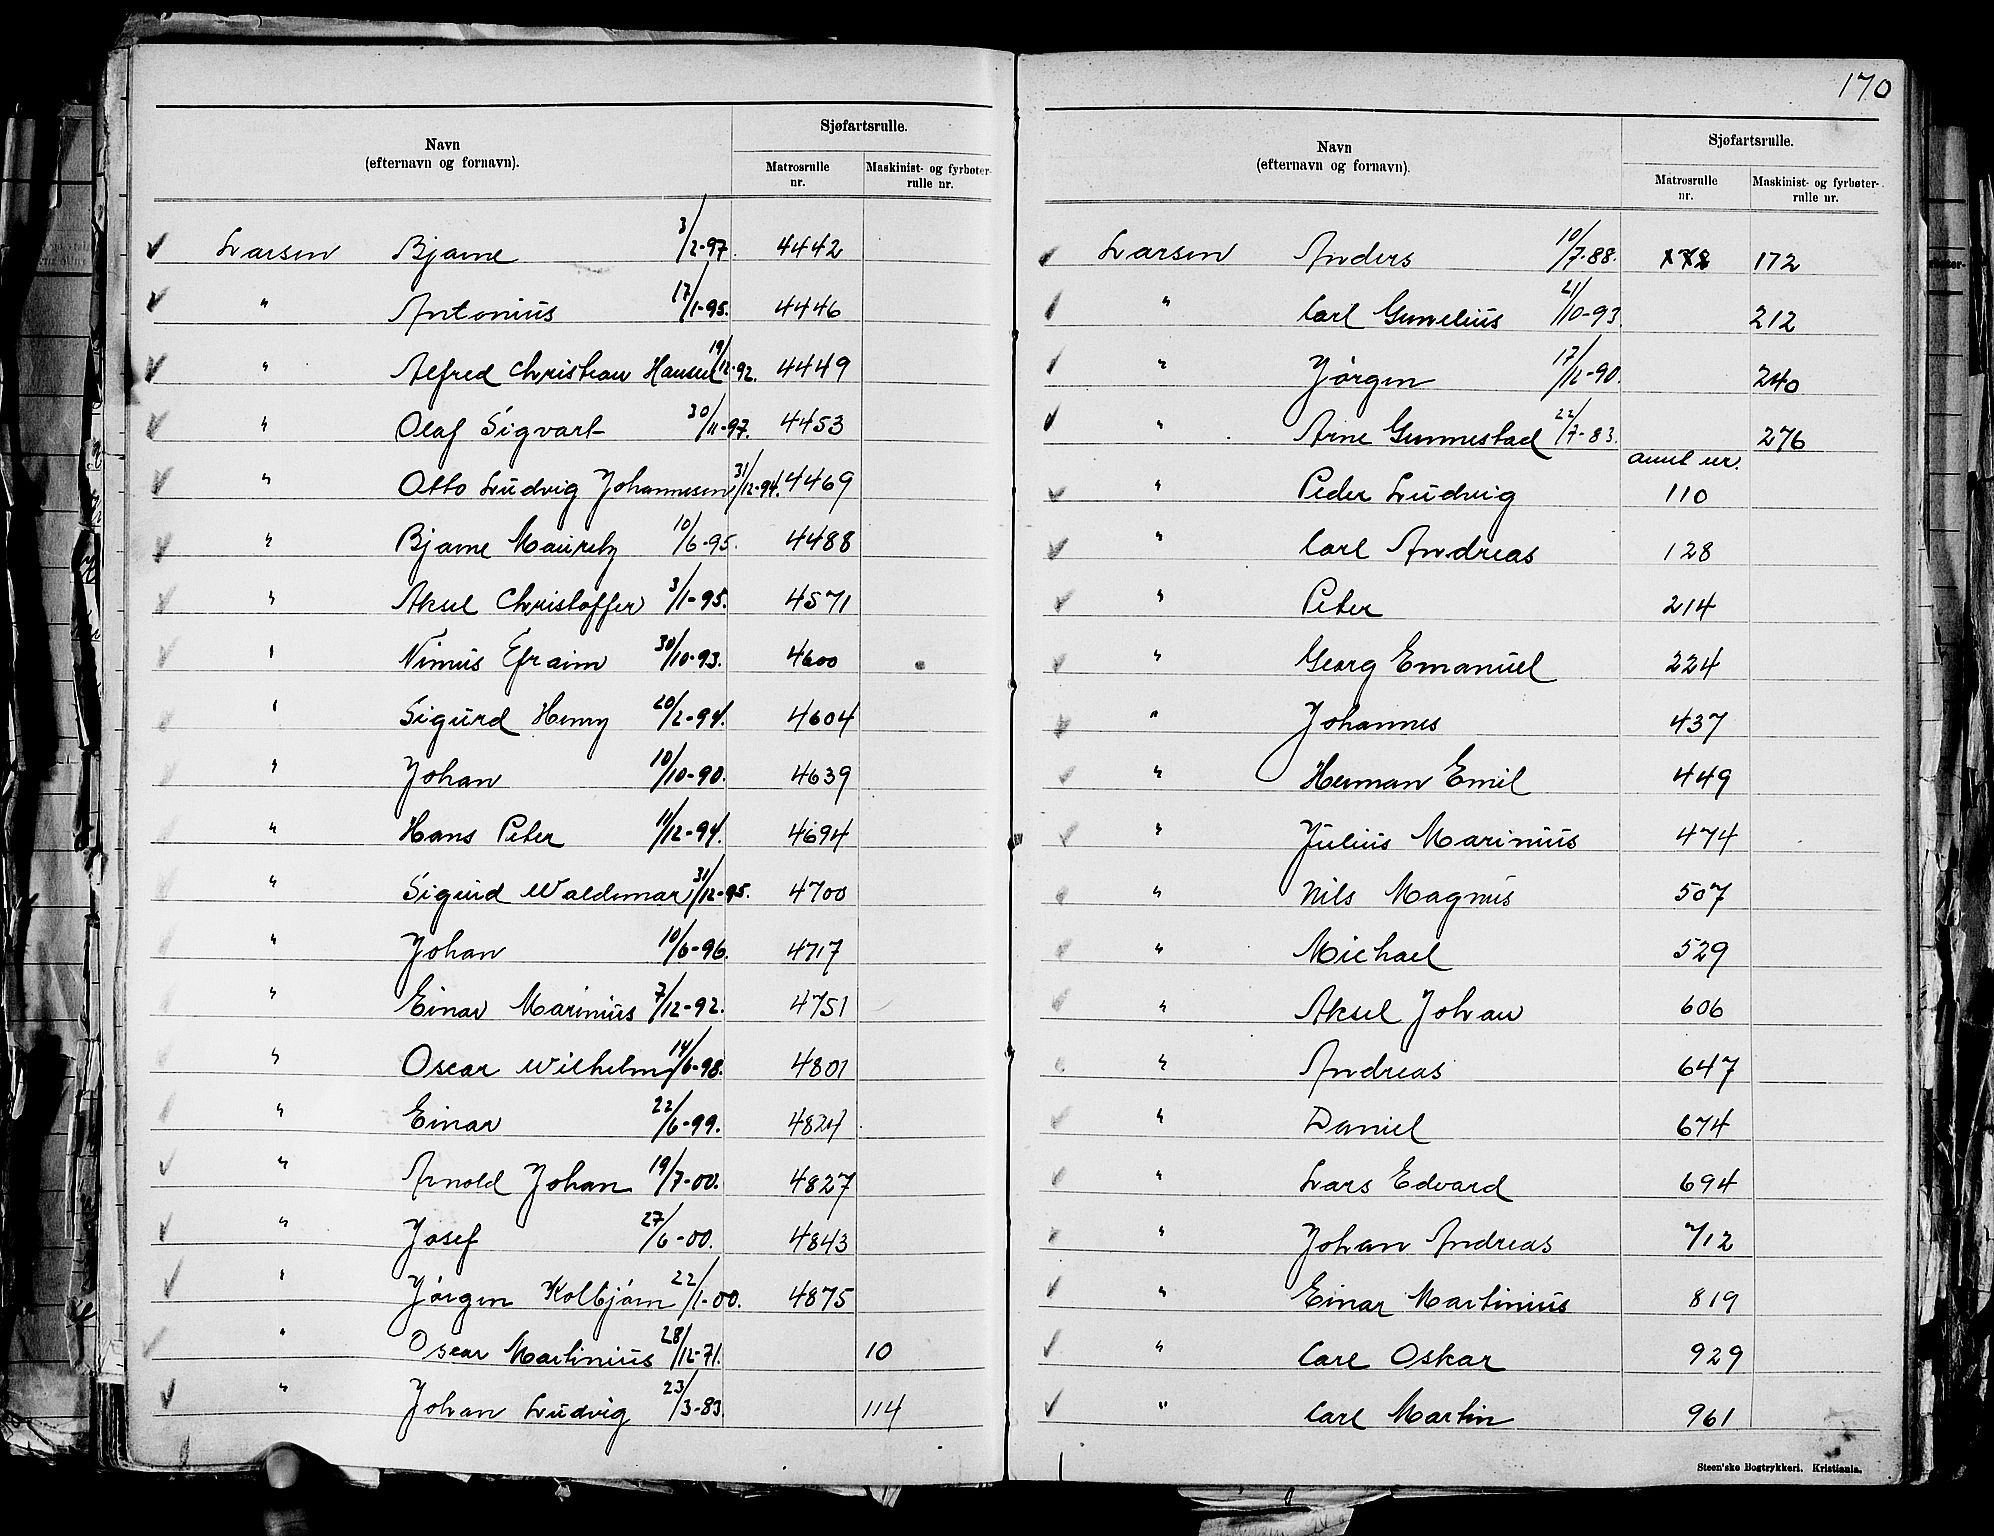 Navn
(efternavn og fornavn).
Sjøfartsrulle.
Matrosrulle nr.
Maskinist- og fyrbøter-rulle nr.
Larsen Bjarne 3/2-97. 4442
" Antonius 17/1-95. 4446
" Alfred Christian Hansen 19/12-92. 4449
" Olaf Sigvart 30/11-97. 4453
" Otto Ludvig Johannesen 31/12-94. 4469
" Bjarne Mauritz 10/6-95. 4488
" Aksel Christoffer 3/1-95. 4571
" Nimus Efraim 30/10-93. 4600
" Sigurd Henry 20/2-94. 4604
" Johan 10/10-90. 4639
" Hans Peter 11/12-94. 4694
" Sigurd Waldemar 31/12-95. 4700
" Johan 10/6-96. 4717
" Einar Marinius 7/12-92. 4751
" Oscar Wilhelm 14/6-98. 4801
" Einar 22/6-99. 4824
" Arnold Johan 19/7-00. 4827
" Josef 27/6-00. 4843
" Jørgen Kolbjørn 22/1-00. 4875
" Oscar Martinius 28/12-71. 10
" Johan Ludvig 23/3-83 114
170
Navn
(efternavn og fornavn).
Sjøfartsrulle.
Matrosrulle nr.
Maskinist- og fyrbøter-rulle nr.
Larsen Anders 10/7-88. 172 172
" Carl Gunelius 21/10-93. 212
" Jørgen 17/12-90. 240
" Arne Gunnestad 22/7-83. 276
annl nr.
" Peder Ludvig 110
" Carl Andreas 128
" Peter 214
" Georg Emanuel 224
" Johannes 437
" Herman Emil 449
" Julius Marinius 474
" Nils Magnus 507
" Michael 529
" Aksel Johan 606
" Andreas 647
" Daniel 674
" Lars Edvard 694
" Johan Andreas 712
" Einar Martinius 819
" Carl Oskar 929
" Carl Martin 961
Steen'ske Bogtrykkeri. Kristiania.